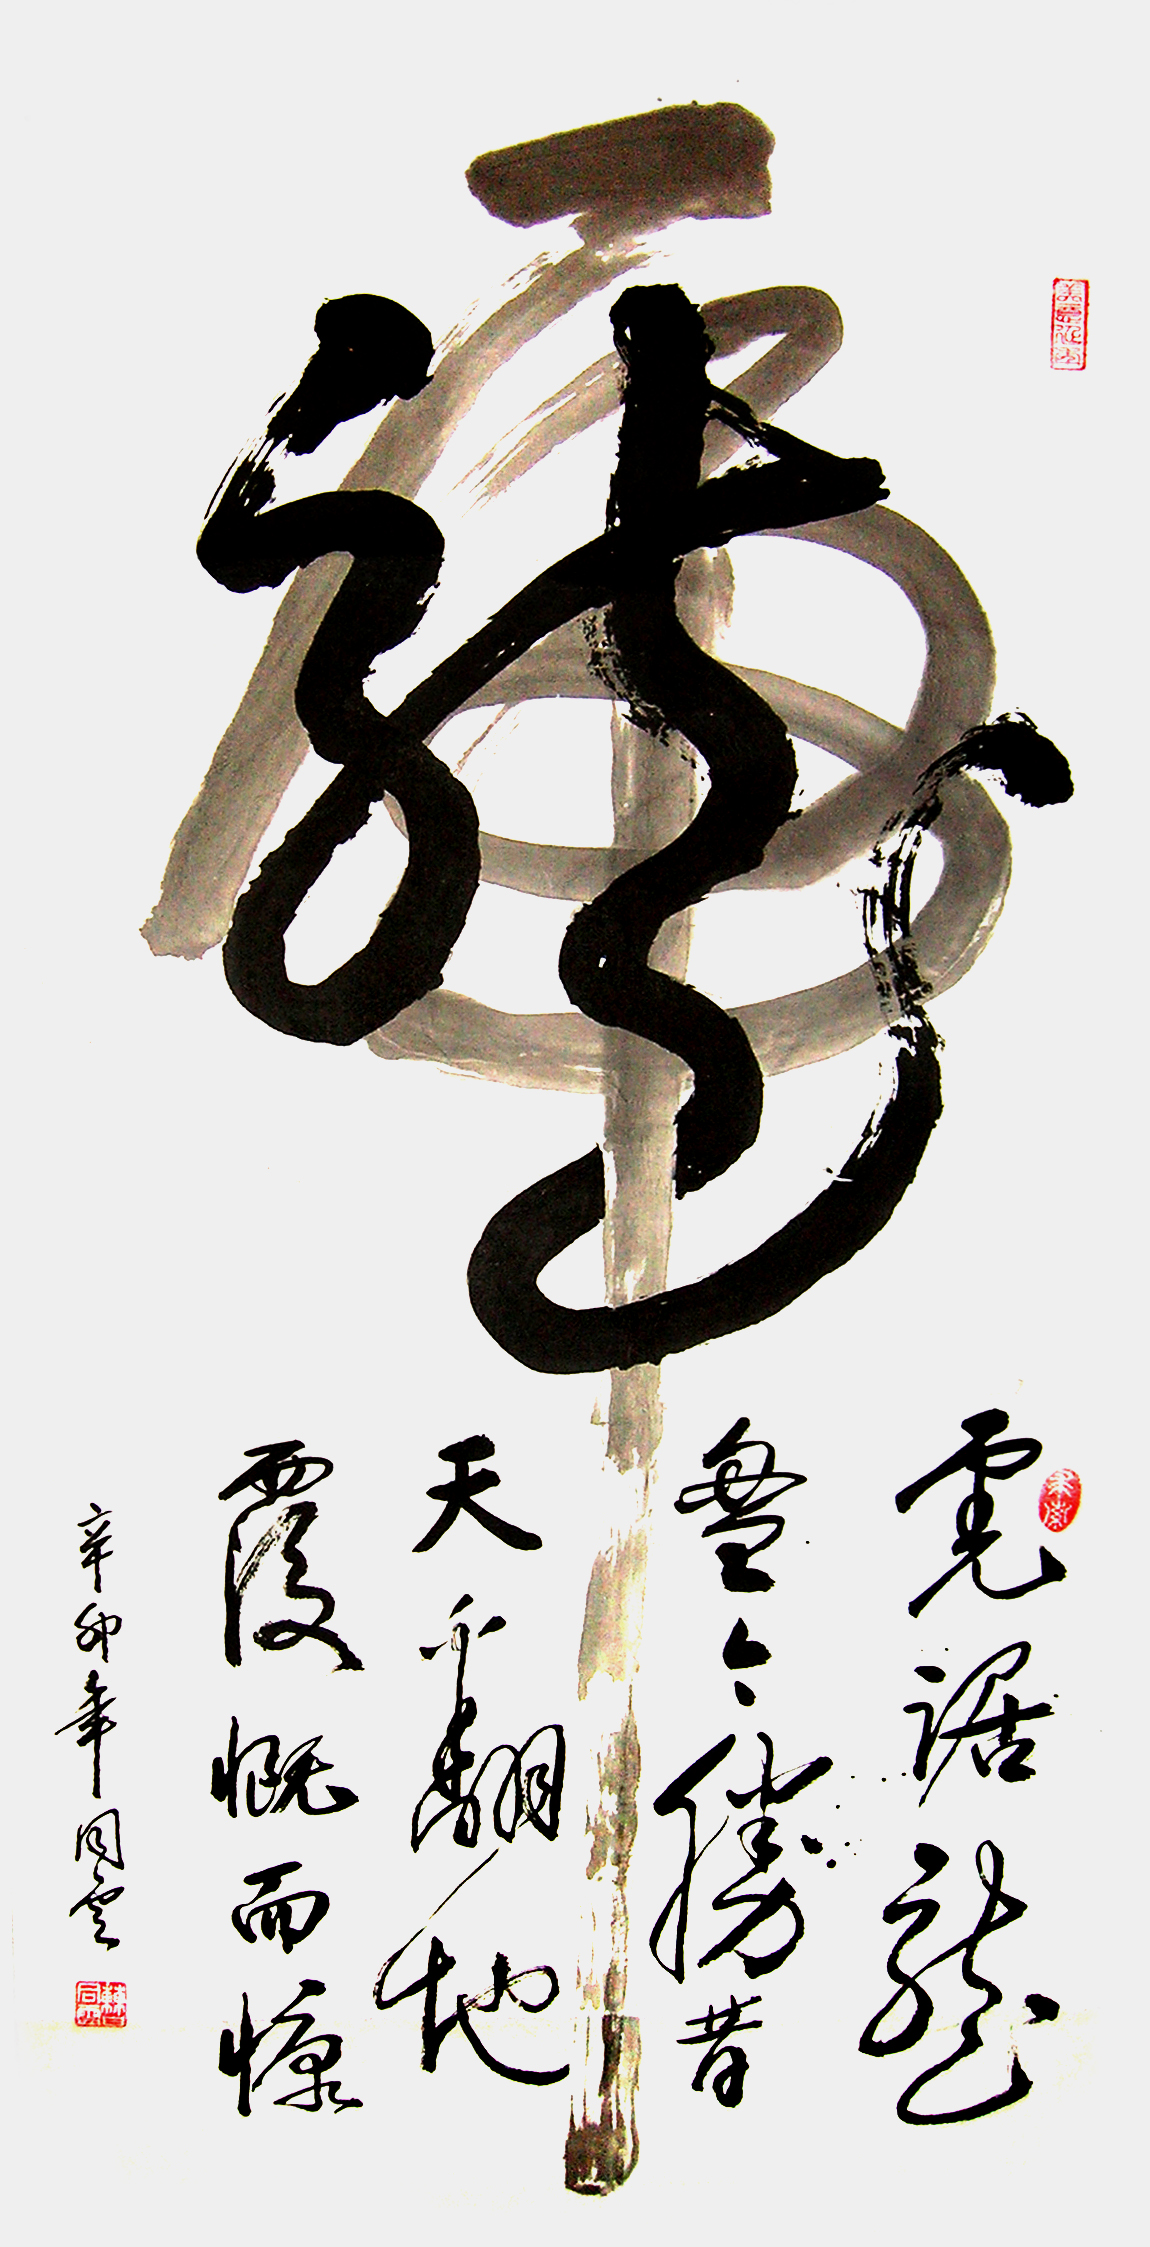 龍虎
虎踞龍
盤今勝昔
天翻地
覆慨而慷
辛卯年同雲